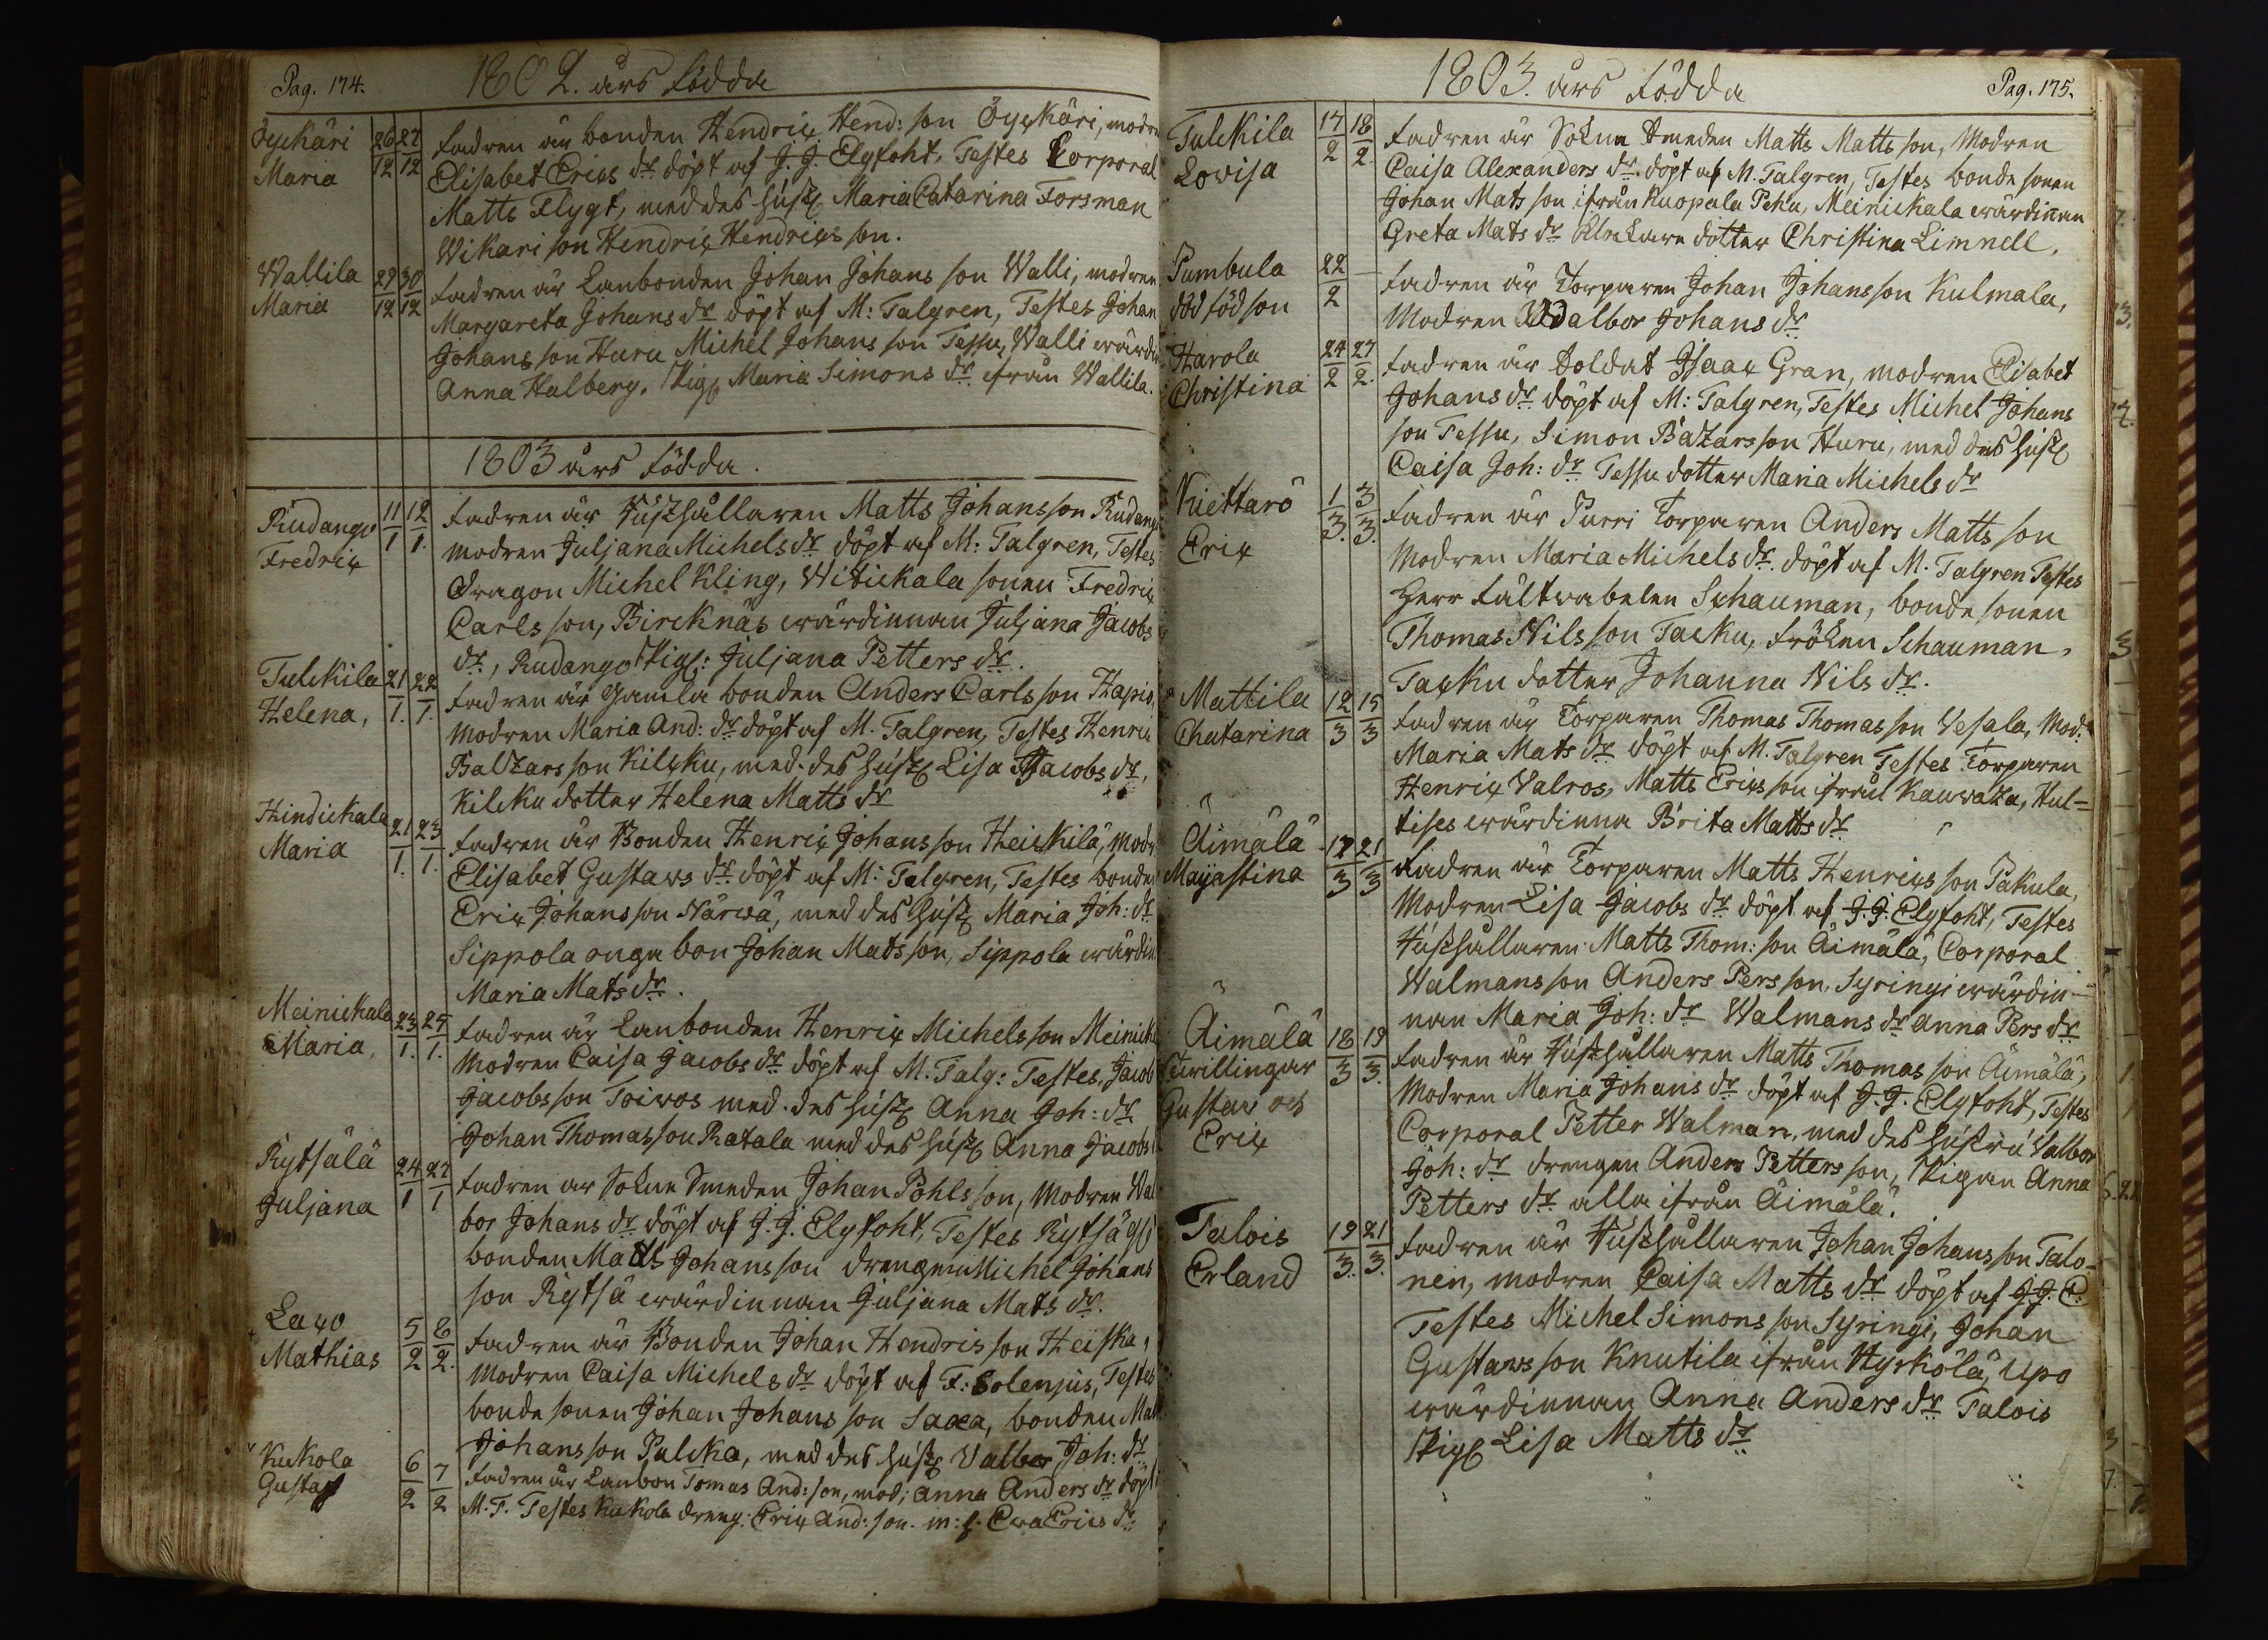 Pag. 174.
1802. års födda
Öyckäri Maria 26/12 27/12 fadren är bonden Hendrix Hend: son Öyckäri, modren
Elisabet Erics dr döpt af J. J. Elgfoht, Testes Corporal
Matts Flygt, med des hust Maria Catarina Forsman
Wikari son Hendrix Hendrics son.
Wallila Maria 29/12 30/12 fadren är Lanbonden Johan Johans son Walli, modren
Margareta Johans dr döpt af M: Talgren, Testes Johan
Johans son Huru Michel Johans son Tessu, Walli wärdin
Anna Halberg. Pig Maria Simons dr ifrån Wallila.
1803 års födda.
Rudango Fredrix 11/1 12/1. fadren är Husshållaren Matts Johansson Rudang
modren Juljana Michels dr döpt af M: Talgren, Testes
Dragon Michel Kling, Witickala sonen Fredrix
Carls son, Bircknäs wärdinnan Juljana Jacobs
dr, Rudango Pig: Juljana Petters dr.
Tulckila Helena, 21/1. 22/1. fadren är gamla bonden Anders Carls son Hapio,
modren Maria And: dr döpt af M. Talgren, Testes Henric
Baltzars son Kilcku, med des hust Lisa Jacobs dr,
Kilcku dotter Helena Matts dr
Hindickala Maria 21/1. 23/1. fadren är Bonden Henrix Johansson Heickilä, modr
Elisabet Gustavs dr döpt af M: Talgren, Testes bonden
Erix Johansson Närwä, med des hust Maria Joh: dr
Sippola unga bon Johan Madsson, Sippola wärdin
Maria Mats dr.
Meinickala Maria, 23/1. 25/1. fadren är Lanbonden Henrix Michelsson Meinick
modren Caisa Jacobs dr döpt af M. Talg: Testes, Jacob
Jacobsson Toivos med des hust Anna Joh: dr
Johan Thomas son Ratala med des hust Anna Jacobs
Rytsälä Juljana 24/1 27/1 fadren är Sokne Smeden Johan Pohls son, Modren Wal
bor Johans dr döpt af J. J. Elgfoht, Testes Rytsä
bonden Matts Johansson drengen Michel Johans
son Rytsä wärdinnan Juljana Mats dr.
Laxo Mathias 5/2 6/2. fadren är Bonden Johan Hendrisson Heiska,
modren Caisa Michels dr döpt af F: Solenjus, Testes
bonde sonen Johan Johans son Saxa, bonden Mat
Johansson Pulcka, med des hust Valbor Joh: dr
Kukola Gustaf 6/2 7/2 fadren är Lanbon Tomas And: son, mod; Anna Anders dr döpt
M. T. Testes Kukola dreng: Erix And: son. m: h. Ewa Erics dr
1803. års födda
Pag. 175.
Tulckila Lovisa 17/2 18/2. fadren är Sokne Smeden Matts Matts son, Modren
Caisa Alexanders dr. döpt af M. Talgren, Testes bonde sonen
Johan Mats son ifrån Kuopala Pehu, Meinickala wärdinan
Greta Mats dr Klockare dotter Christina Limnell.
Pumbula död född son 22/2 — fadren är Torparen Johan Johansson Kulmala,
Modren Walbor Johans dr
Harola Christina 24/2 27/2. fadren är Soldat Isaax Gran, modren Elisabet
Johans dr döpt af M: Talgren, Testes Michel Johans
son Tessu, Simon Baltzarsson Huru, med des hust
Caisa Joh: dr Tessu dotter Maria Michels dr
Kiettarö Erix 1/3. 3/3. fadren är Purri Torparen Anders Matts son
Modren Maria Michels dr. döpt af M. Talgren Testes
Herr Fältwäbelen Schauman, bonde sonen
Thomas Nilsson Tacku, Fröken Schauman,
Tacku dotter Johanna Nils dr.
Mattila Chatarina 12/3 15/3 fadren är Torparen Thomas Thomasson Vesala, Mod:
Maria Mats dr döpt af M. Talgren Testes Torparen
Henrix Valros, Matts Ericsson ifrån Kauvatza, Hul=
tises wärdinna Brita Matts dr
Äimälä Mayastina 17/3 21/3 fadren är Torparen Matts Henrics son Pakula,
Modren Lisa Jacobs dr döpt af J. J. Elgfoht, Testes
Husshållaren Matts Thom: son Äimälä, Corporal
Walmansson Anders Persson, Syringi wärdin-
nan Maria Joh: dr Walmans dr Anna Pers dr
Äimälä twillingar Gustav och Erix 18/3 19/3. fadren är Husshållaren Matts Thomas son Äimälä,
Modren Maria Johans dr döpt af J. J. Elgfoht, Testes
Corporal Petter Walman, med des hustru Valbor
Joh: dr drengen Anders Petters son, Pigan Anna
Petters dr alla ifrån Äimälä.
Talois Erland 19/3. 21/3. fadren är Husshållaren Johan Johansson Talo-
nen, modren Caisa Matts dr döpt af J. J. E:
Testes Michel Simons son Syringi, Johan
Gustavsson Knutila ifrån Hyrkölä, Upo
wärdinnan Anna Anders dr Talois
Pig Lisa Matts dr